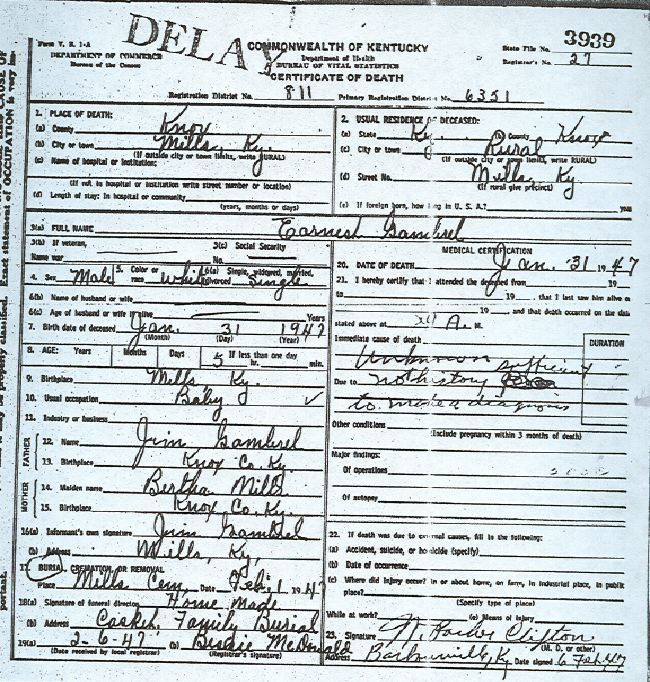 DELAY
Form V. S. 1-A
DEPARTMENT OF COMMERCE
Bureau of the Census
COMMONWEALTH OF KENTUCKY
Department of Health
BUREAU OF VITAL STATISTICS
CERTIFICATE OF DEATH
State File No. 3939
Registrar's No. 27
Registration District No. 811 Primary Registration District No. 6351
1. PLACE OF DEATH:
(a) County Knox
(b) City or town Mills, Ky.
(If outside city or town limits, write RURAL)
(c) Name of hospital or institution:
(If not in hospital or institution write street number or location)
(d) Length of stay: In hospital or community
(years, months or days)
2. USUAL RESIDENCE OF DECEASED:
(a) State Ky (b) County Knox
(c) City or town Rural
(If outside city or town limits, write RURAL)
(d) Street No. Mills, Ky.
(If rural give precinct)
(e) If foreign born, how long in U. S. A.? years
3(a) FULL NAME Earnest Gambrel
3(b) If veteran, Name war
3(c) Social Security No.
4. Sex Male 5. Color or race White 6(a) Single, widowed, married, divorced Single
6(b) Name of husband or wife
6(c) Age of husband or wife if alive Years
7. Birth date of deceased Jan. 31 1947
(Month) (Day) (Year)
8. AGE: Years Months Days If less than one day
5 hr. min.
9. Birthplace Mills, Ky.
10. Usual occupation Baby
11. Industry or business
FATHER
12. Name Jim Gambrel
13. Birthplace Knox Co. Ky.
MOTHER
14. Maiden name Bertha Mills
15. Birthplace Knox Co. Ky.
16(a) Informant's own signature Jim Gambrel
(b) Address Mills, Ky.
17. BURIAL, CREMATION OR REMOVAL
Place Mills Cem. Date Feb. 1 1947
18(a) Signature of funeral director Home Made
(b) Address Casket Family Burial
19(a) 2-6-47 (b) Bessie McDonald
(Date received by local registrar) (Registrar's signature)
MEDICAL CERTIFICATION
20. DATE OF DEATH Jan. 31 1947
21. I hereby certify that I attended the deceased from 19
to 19 , that I last saw him alive on
19 and that death occurred on the date
stated above at A. M.
Immediate cause of death DURATION
Unknown sufficient
Due to not history
to make a diagnosis
Other conditions
(Include pregnancy within 3 months of death)
Major findings:
Of operations
Of autopsy
22. If death was due to external causes, fill in the following:
(a) Accident, suicide, or homicide (specify)
(b) Date of occurrence
(c) Where did injury occur? In or about home, on farm, in industrial place, in public
place?
(Specify type of place)
While at work? (e) Means of injury
23. Signature W. Parker Clifton
(M. D. or other)
Address Barbourville, Ky Date signed 6 Feb 47